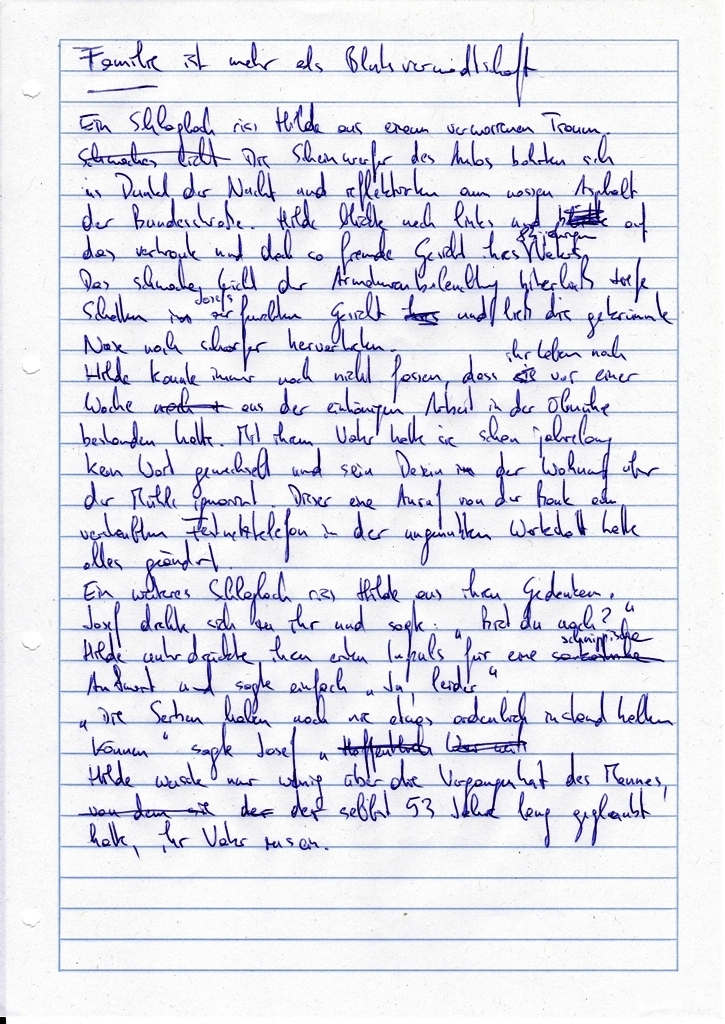 Familie ist mehr als Blutsverwandtschaft
Ein Schlagloch riss Hilde aus einem verworrenen Traum.
Schwaches Licht Die Scheinwerfer des Autos bohrten sich
ins Dunkel der Nacht und reflektierten am nassen Asphalt
der Bundesstraße. Hilde blickte nach links und auf
das vertraute und doch so fremde Gesicht ihres 83 jährigen Vaters.
Das schwache Licht der Armaturenbeleuchtung hinterließ tiefe
Schatten im Josefs zerfurchten Gesicht und ließ die gekrümmte
Nase noch schärfer hervortreten.
Hilde konnte immer noch nicht fassen, dass ihr Leben noch vor einer
Woche aus der eintönigen Arbeit in der Ölmühle
bestanden hatte. Mit ihrem Vater hatte sie schon jahrelang
kein Wort gewechselt und sein Dasein in der Wohnung über
der Mühle ignoriert. Dieser eine Anruf von der Bank am
verstaubten Festnetztelefon in der ungenutzten Werkstatt hatte
alles geändert.
Ein weiteres Schlagloch riss Hilde aus ihren Gedanken.
Josef drehte sich zu ihr und sagte: „Bist du wach?"
Hilde unterdrückte ihren ersten Impuls für eine schnippische
Antwort und sagte einfach „Ja, leider".
„Die Serben haben noch nie etwas ordentlich instand halten
können" sagte Josef „Hoffentlich
Hilde wusste nur wenig über die Vergangenheit des Mannes,
von dem sie der der selbst 53 Jahre lang geglaubt
hatte, ihr Vater zu sein.